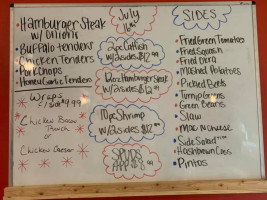 Hamburger Steak
w/ onions
Buffalo tenders
Chicken Tenders
Pork Chops
Honey Garlic Tenders
Wraps
w/ 1 side $9.99
Chicken Bacon
Ranch
or
Chicken Caesar
July
2pc Catfish
w/2 sides $12.99
12oz Hamburger Steak
w/2 sides $12.99
10pc Shrimp
w/2 sides $12.99
SPUDS
SIDES
Fried Green Tomatoes
Fried Squash
Fried Okra
Mashed Potatoes
Pickled Beets
Turnip Greens
Green Beans
Slaw
Mac n cheese
Side Salad
Hashbrown Cass
Pintos